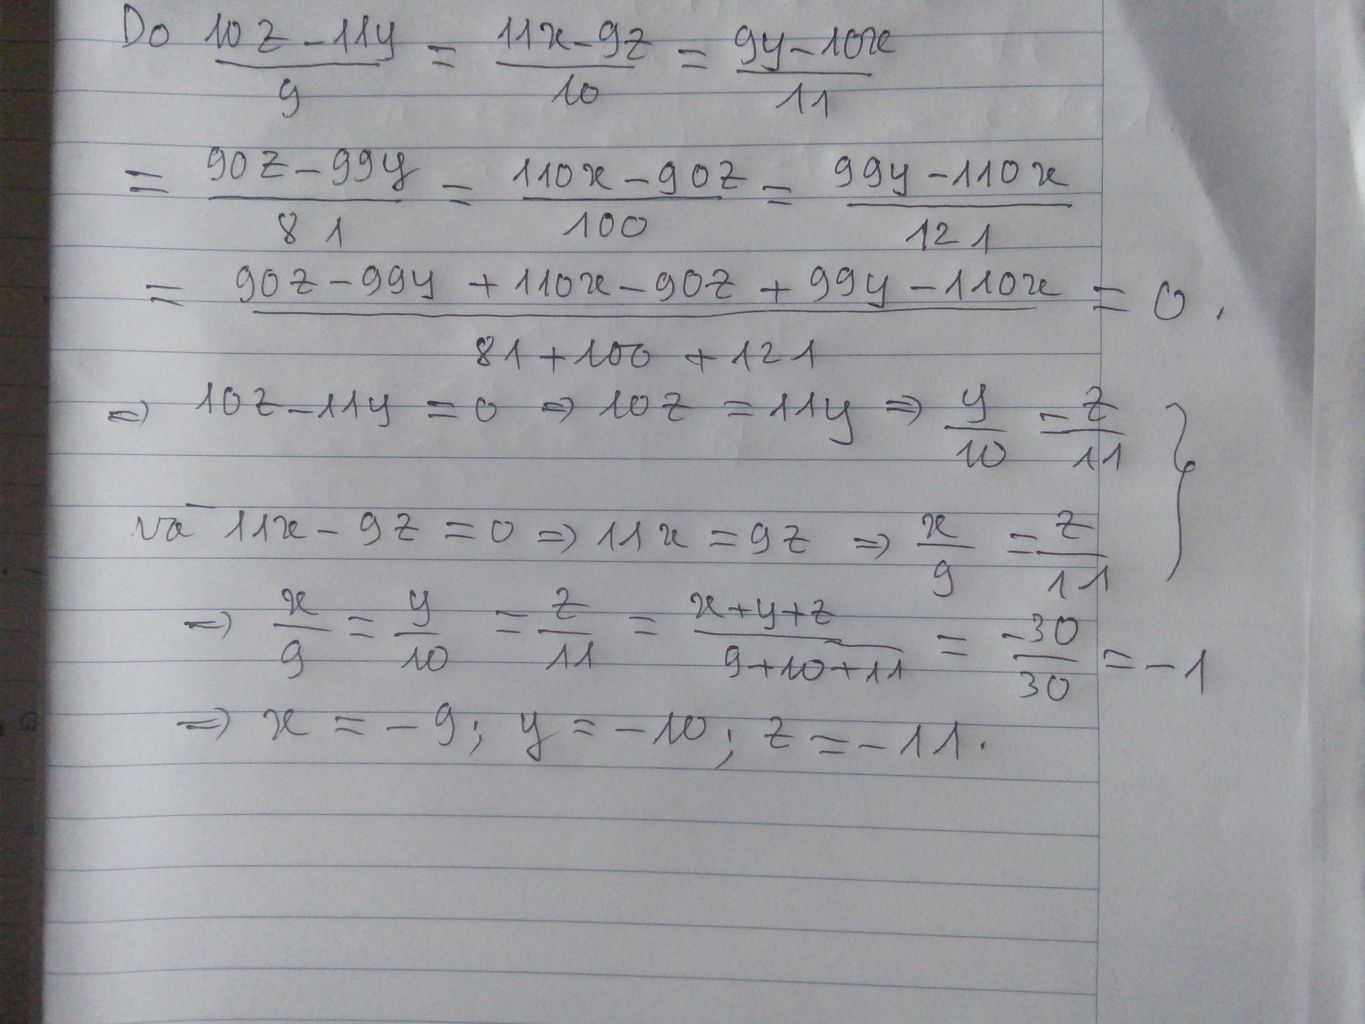 Do (10z-11y)/9 = (11x-9z)/10 = (9y-10x)/11
= (90z-99y)/81 = (110x-90z)/100 = (99y-110x)/121
= (90z-99y+110x-90z+99y-110x)/(81+100+121) = 0.
=> 10z-11y = 0 => 10z = 11y => y/10 = z/11 }
và 11x-9z = 0 => 11x = 9z => x/9 = z/11
=> x/9 = y/10 = z/11 = (x+y+z)/(9+10+11) = -30/30 = -1
=> x = -9; y = -10; z = -11.